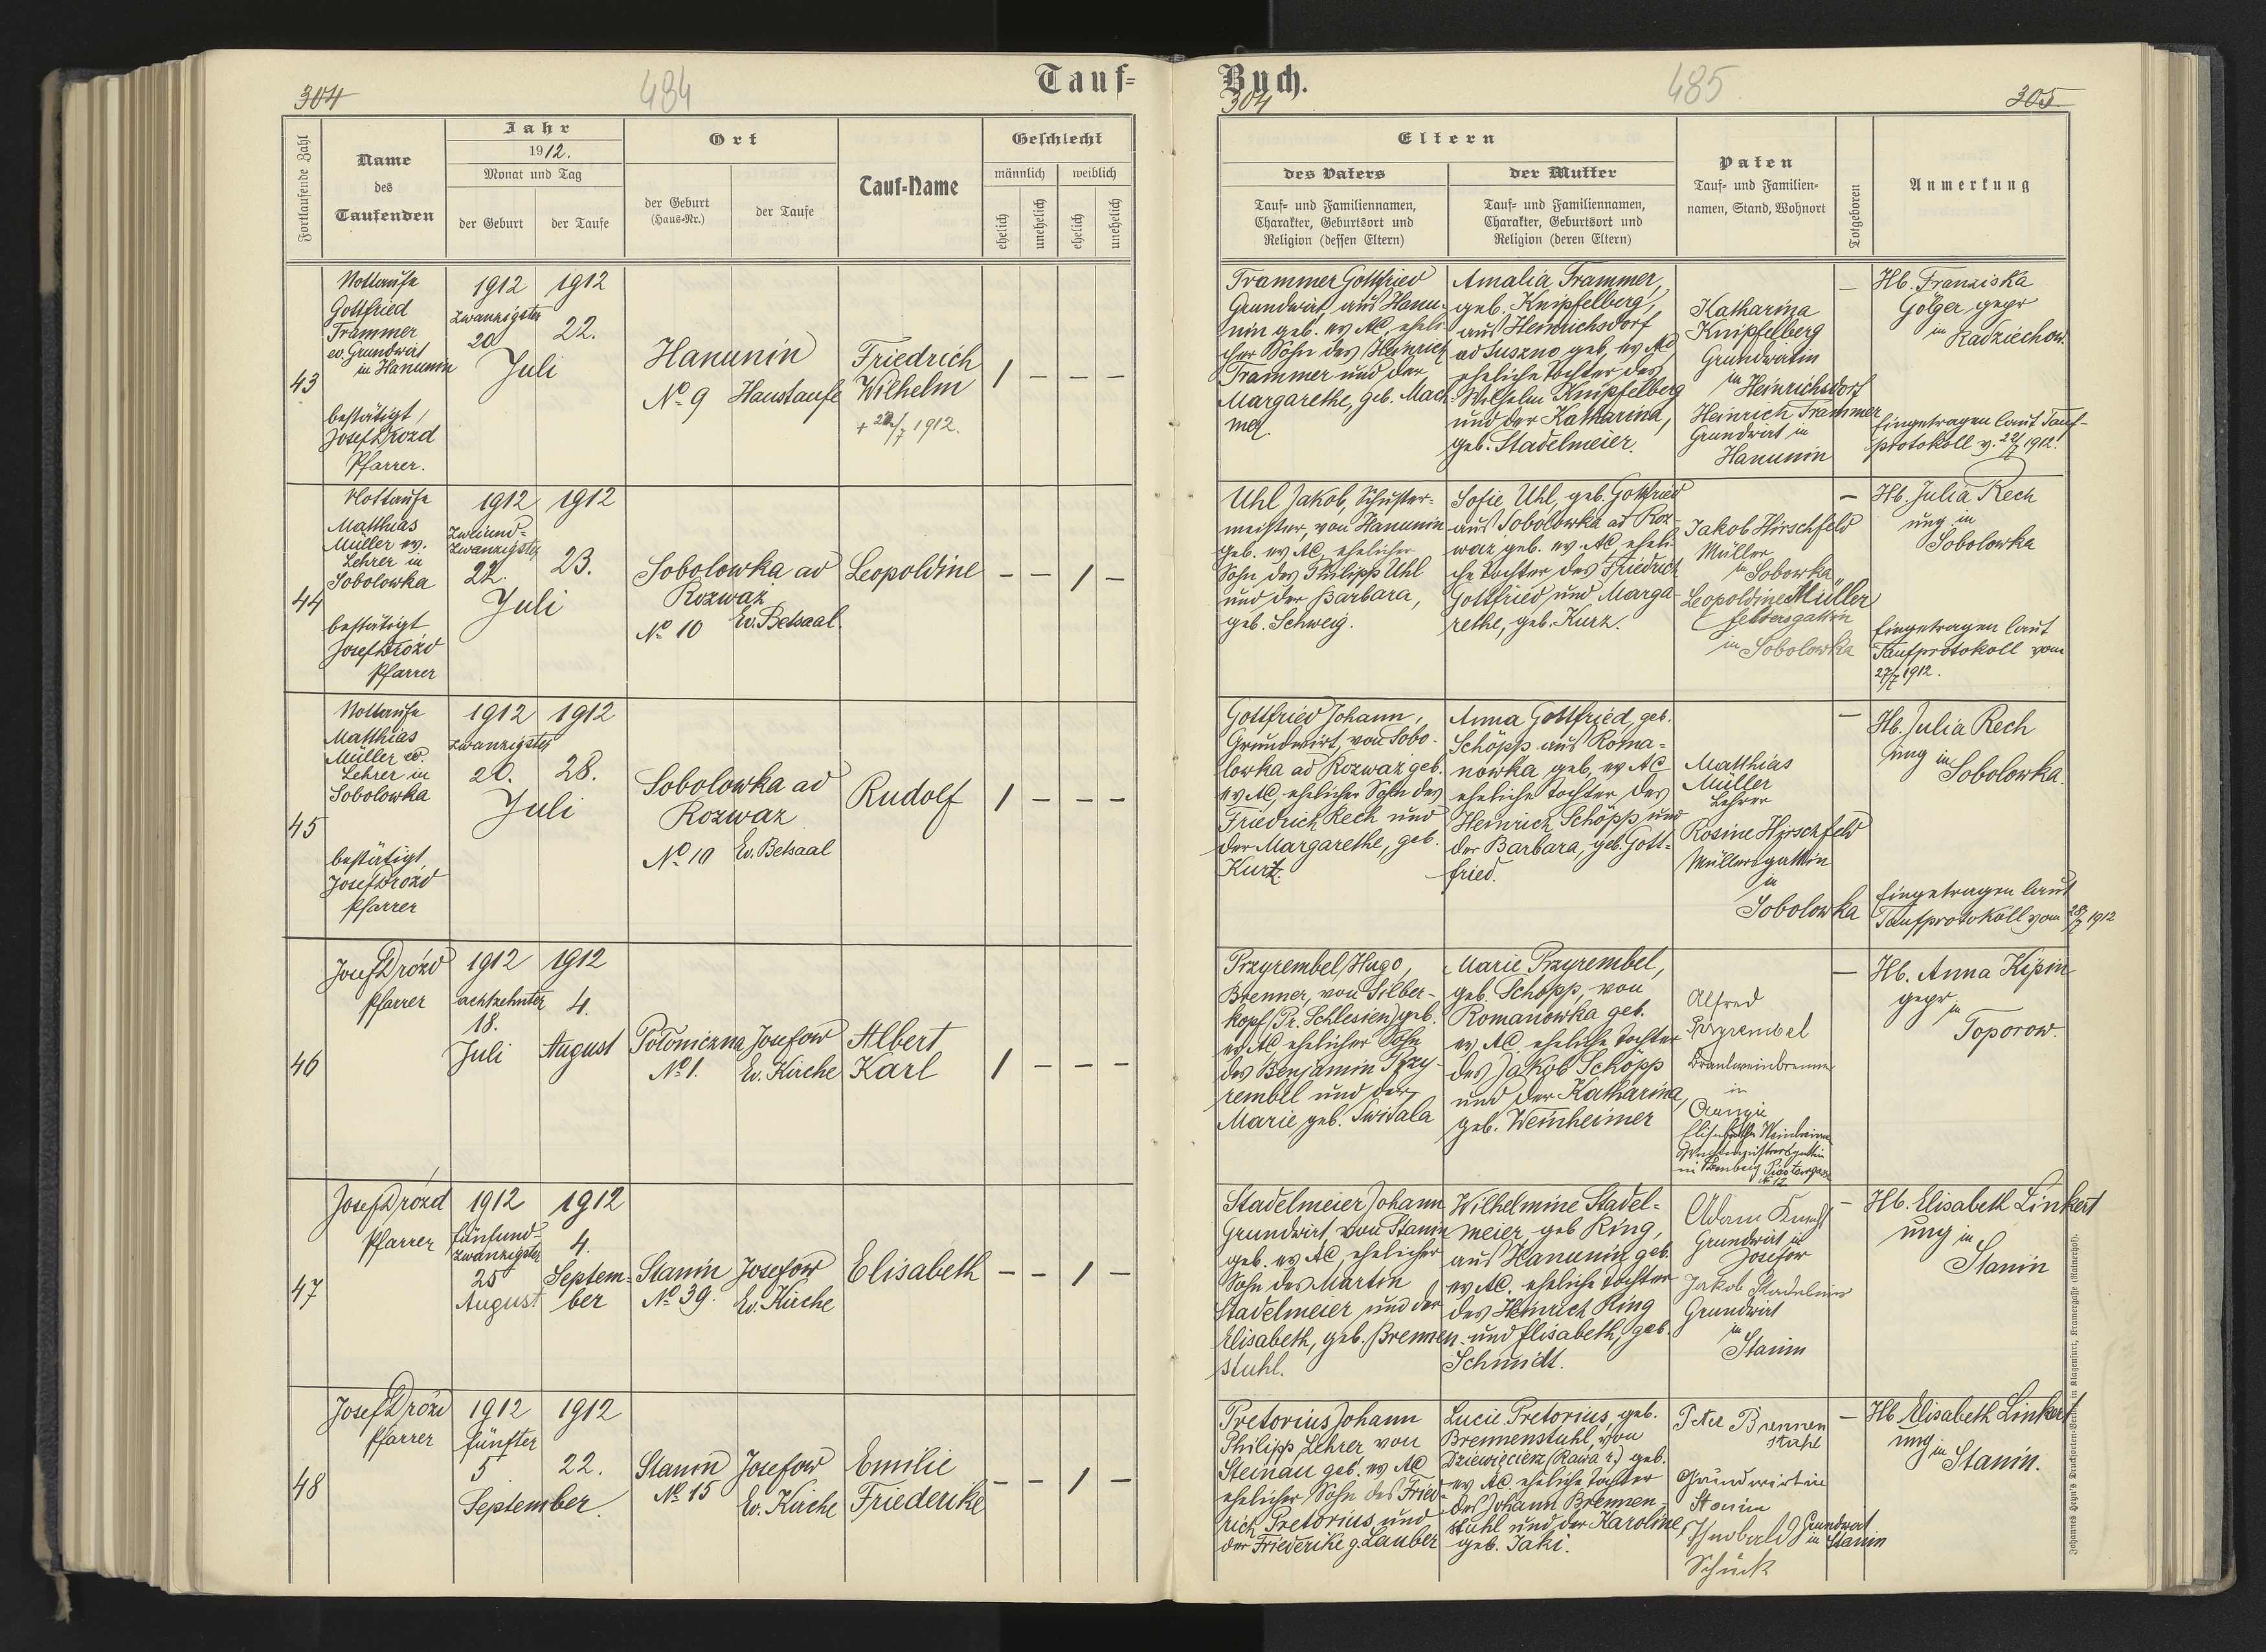 304
484
Tauf-
Fortlaufende Zahl
Name
des
Taufenden
Jahr
1912.
Monat und Tag
der Geburt
der Taufe
Ort
der Geburt
(Haus-Nr.)
der Taufe
Tauf-Name
Geschlecht
männlich
weiblich
ehelich
unehelich
ehelich
unehelich
43
Nottaufe
Gottfried
Trammer
ev. Grundwirt
in Hanunin
bestätigt,
Josef Drozd
Pfarrer.
1912
Zwanzigster
20
Juli
1912
22.
Hanunin
No 9
Haustaufe
Friedrich
Wilhelm
+ 22/7 1912.
1 — — —
44
Nottaufe
Matthias
Müller ev.
Lehrer in
Sobolowka
bestätigt
Josef Drózd
Pfarrer
1912
Zweiund-
zwanzigster
22.
Juli
1912
23.
Sobolowka ad
Rozwaz
No 10
Ev. Betsaal
Leopoldine
— — 1 —
45
Nottaufe
Matthias
Müller ev.
Lehrer in
Sobolowka
bestätigt,
Josef Drozd
Pfarrer
1912
Zwanzigster
20.
Juli
1912
28.
Sobolowka ad
Rozwaz
No 10
Ev. Betsaal
Rudolf
1 — — —
46
Josef Drózd
Pfarrer
1912
achtzehnter
18.
Juli
1912
4.
August
Poloniczna
No 1.
Josefow
Ev. Kirche
Albert
Karl
1 — — —
47
Josef Drózd
Pfarrer
1912
fünfund-
zwanzigster
25
August
1912
4.
Septem-
ber
Stanin
No 39.
Josefow
Ev. Kirche
Elisabeth
— — 1 —
48
Josef Drózd
Pfarrer
1912
fünfter
5
September.
1912
22.
Stanin
No 15
Josefow
Ev. Kirche
Emilie
Friederike
— — 1 —
Buch.
304
485
305
Eltern
des Vaters
Tauf- und Familiennamen,
Charakter, Geburtsort und
Religion (dessen Eltern)
der Mutter
Tauf- und Familiennamen,
Charakter, Geburtsort und
Religion (deren Eltern)
Paten
Tauf- und Familien-
namen, Stand, Wohnort
Totgeboren
Anmerkung
Trammer Gottfried
Grundwirt, aus Hanu-
nin geb. ev AC, eheli-
cher Sohn des Heinrich
Trammer und der
Margarethe, geb. Mach-
mer.
Amalia Trammer,
geb. Knipfelberg,
aus Heinrichsdorf
ad Suszno geb. ev AC
eheliche Tochter des
Wilhelm Knipfelberg
und der Katharina,
geb. Stadelmeier.
Katharina
Knipfelberg
Grundwirtin
in Heinrichsdorf
Heinrich Trammer
Grundwirt in
Hanunin
—
Hb. Franziska
Gölger gepr
in Radziechow.
Eingetragen laut Tauf-
protokoll v. 22/7 1912.
Uhl Jakob, Schuster-
meister, von Hanunin
geb. ev AC, ehelicher
Sohn des Philipp Uhl
und der Barbara,
geb. Schweig.
Sofie Uhl, geb. Gottfried
aus Sobolowka ad Roz-
waz geb. ev. AC eheli-
che Tochter des Friedrich
Gottfried und Marga-
rethe, geb. Kurz.
Jakob Hirschfeld
Müller
in Sobowka
Leopoldine Müller
Lehrersgattin
in Sobolowka
—
Hb. Julia Rech
ung in
Sobolowka
Eingetragen laut
Taufprotokoll vom
27/7 1912.
Gottfried Johann,
Grundwirt, von Sobo-
lowka ad Rozwaz geb.
ev AC, ehelicher Sohn des
Friedrich Rech und
der Margarethe, geb.
Kurtz.
Anna Gottfried, geb.
Schöpp aus Roma-
nowka, geb. ev AC
eheliche Tochter des
Heinrich Schöpp und
der Barbara, geb. Gott-
fried.
Matthias
Müller
Lehrer
Rosine Hirschfeld
Müllersgattin
in
Sobolowka
—
Hb. Julia Rech
ung in
Sobolowka.
Eingetragen laut
Taufprotokoll vom 28/7 1912
Przyrembel Hugo,
Brenner, von Silber-
kopf (Pr. Schlesien) geb.
ev AC ehelicher Sohn
des Benjamin Przy-
rembel und der
Marie geb. Swidala
Marie Przyrembel,
geb. Schöpp, von
Romanowka geb.
ev. AC. eheliche Tochter
des Jakob Schöpp
und der Katharina,
geb. Weinheimer
Alfred
Przyrembel
Brandweinbrenner
in
—
Hb. Anna Kipin
gepr in
Toporow.
Stadelmeier Johann
Grundwirt, von Stanin
geb. ev AC, ehelicher
Sohn des Martin
Stadelmeier und der
Elisabeth, geb. Brennen-
stuhl.
Wilhelmine Stadel-
meier, geb Ring,
aus Hanunin geb.
ev AC. eheliche Tochter
des Heinrich Ring
und Elisabeth, geb.
Schmidt.
Adam
Grundwirt in
Josefow
Jakob Stadelmeier
Grundwirt
in
Stanin
—
Hb. Elisabeth Linkert
ung in
Stanin
Pretorius Johann
Philipp Lehrer von
Steinau geb. ev AC
ehelicher Sohn des Fried-
rich Pretorius und
der Friederike g. Lauber
Lucie Pretorius, geb.
Brennenstuhl, von
Dziewięcierz (Rawa r.) geb.
ev AC. eheliche Tochter
des Johann Brennen-
stuhl und der Karoline,
geb. Jaki.
Peter Brennen
stuhl
Grundwirt in
Stanin
Theobald
Schück
Grundwirt
in Stanin
—
Hb. Elisabeth Linkert
ung in
Stanin.
Johannes Heyn's Drucksorten-Verlag in Klagenfurt, Kramergasse (Rainerhof).